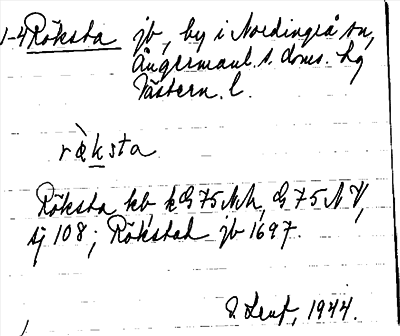 1-4 Röksta jb, by i Nordingrå sn,
Ångermanl. s. doms. hg
Västern. l.
ràksta
Röksta kb, k G 75 M M, G 75 N V,
sj 108; Rökstad jb 1697.
1944.